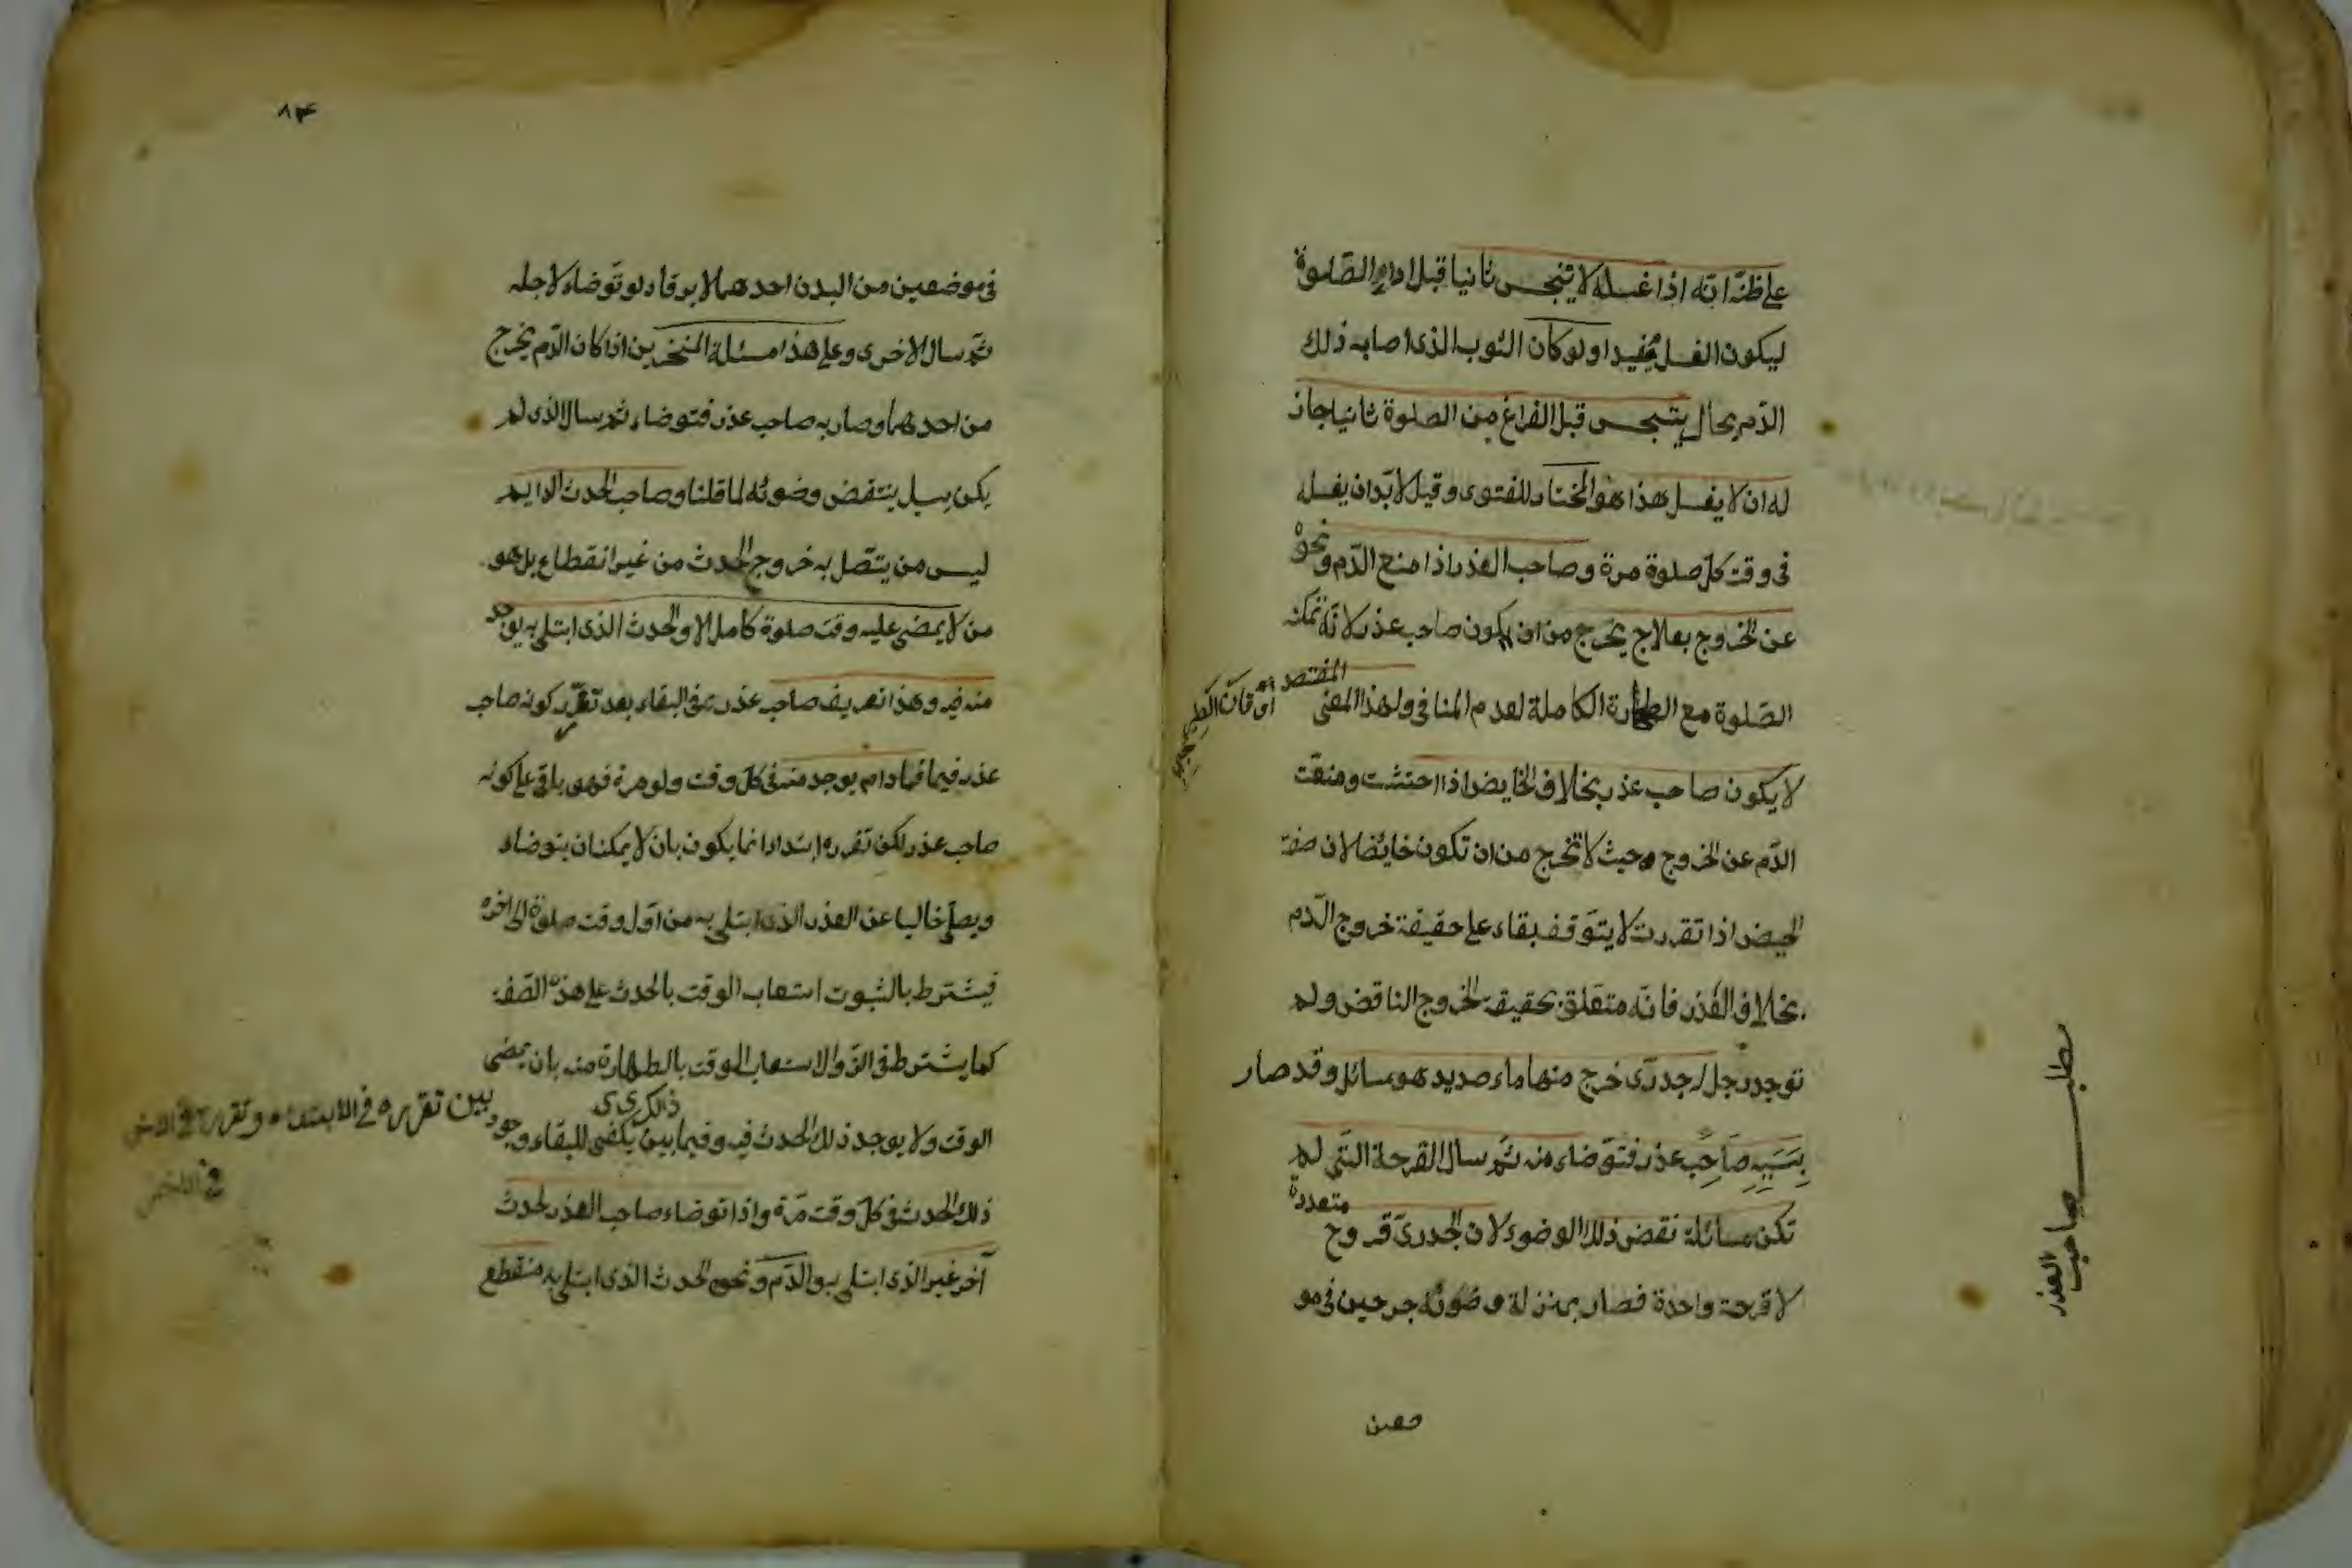 على ظنّه انّه اذا غسله لا يتنجس ثانيا قبل اداء الصّلوة
ليكون الغسل مفيدا ولو كان الثوب الذى اصابه ذلك
الدّم بحال يتنجس قبل الفراغ من الصلوة ثانيا جاز
له ان لا يغسل هذا هو المختار للفتوى وقيل لا بدّ ان يغسله
فى وقت كلّ صلوة مرة وصاحب العذر اذا منع الدّم ونحوه
عن الخروج بعلاج يخرج من ان يكون صاحب عذر لانّه يمكنه
الصّلوة مع الطهارة الكاملة لعدم المنافى ولهذا المعنى
المفتصد
لا يكون صاحب عذر بخلاف الحايض اذا احتشت ومنعت
الدّم عن الخروج حيث لا تخرج من ان تكون حايضا لان صفة
الحيض اذا تقررت لا يتوّقف بقاءه على حقيقة خروج الدّم
بخلاف العذر فانّه متعلّق بحقيقة الخروج الناقض ولم
توجد رجل له جدرّى خرج منها ماء صديد هو سائل وقد صار
بسببه صاحب عذر فتوّضاء منه ثمّ سال القرحة التى لم
تكن سائلة نقض ذلك الوضوء لان الجدرىّ قروح
متعددة
لا قرحة واحدة فصار بمنزلة وضوئه جرحين فى مو
ضعين
مطلب صاحب العذر
٨٣
فى موضعين من البدن احدهما لا يرقاء ولو توّضاء لاجله
ثمّ سال الاخرى وعلى هذا مسئلة المنخرين اذا كان الدّم يخرج
من احدهما وصار به صاحب عذر فتوضاء ثم سال الذى لم
يكن يسيل ينتقض وضوئه لما قلنا وصاحب الحدث الدايم
ليس من يتصّل به خروج الحدث من غير انقطاع بل هو
من لا يمضى عليه وقت صلوة كامل الا والحدث الذى ابتلى به يوجد
منه فيه وهذا تعريف صاحب عذر فى البقاء بعد تقرّر كونه صاحب
عذر فيما فما دام يوجد منه فى كلّ وقت ولو مرة فهو باق على كونه
صاحب عذر لكن تقرره ابتداء انما يكون بان لا يمكنه ان يتوضاء
ويصلّى خاليا عن العذر الذى ابتلى به من اوّل وقت صلوة الى اخره
فيشترط بالثبوت استعاب الوقت بالحدث على هذه الصّفة
كما يشترط فى الزّوال استعاب الوقت بالطهارة منه بان يمضى
الوقت ولا يوجد ذلك الحدث فيه وفيما بين ذالك يكفى للبقاء وجود
بين تقرره فى الابتداء وتقرره فى الاخر
فى الاخر
ذلك الحدث فى كلّ وقت مرّة واذا توضاء صاحب العذر لحدث
آخر غير الذى ابتلى به والدّم ونحوه الحدث الذى ابتلى به منقطع